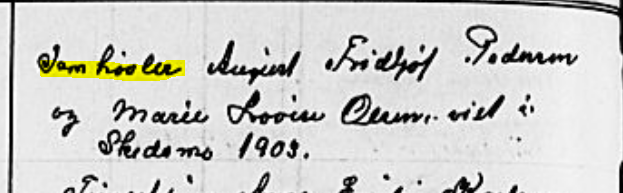 Jernhøvler August Fridtjof Pedersen
og Marie Lovise Olsen. viet i
Skedsmo 1903.